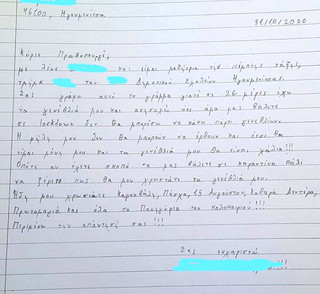 46100, Ηγουμενίτσα
31/10/2020
Κύριε Πρωθυπουργέ,
με λένε και είμαι μαθήτρια της πέμπτης τάξης,
τμήμα του Δημοτικού Σχολείου Ηγουμενίτσας.
Σας γράφω αυτό το γράμμα γιατί σε 26 μέρες έχω
τα γενέθλιά μου και ανησυχώ πως άμα μας βάλετε
σε lockdown δεν θα μπορέσω να κάνω πάρτι γενεθλίων.
Οι φίλες μου δεν θα μπορούν να έρθουν και έτσι θα
είμαι μόνη μου και τα γενέθλιά μου θα είναι χάλια!!!
Οπότε αν έχετε σκοπό να μας βάλετε σε καραντίνα πάλι
να ξέρετε πως θα μου χρωστάτε τα γενέθλιά μου.
Ήδη μου χρωστάτε Καρναβάλι, Πάσχα, 15 Αυγούστου, Καθαρά Δευτέρα,
Πρωτομαγιά και όλα τα Πανηγύρια του καλοκαιριού!!!
Περιμένω την απάντησή σας!!!
Σας ευχαριστώ
!!!